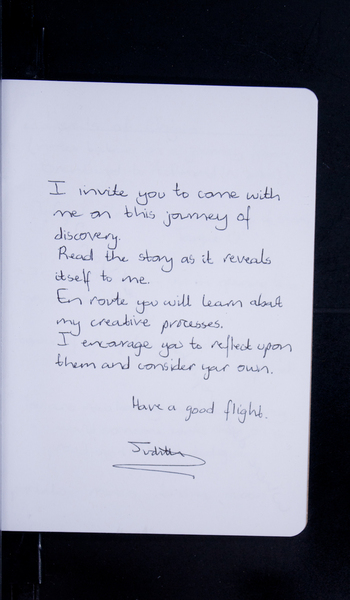 I invite you to come with
me on this journey of
discovery.
Read the story as it reveals
itself to me.
En route you will learn about
my creative processes.
I encourage you to reflect upon
them and consider your own.
Have a good flight.
Judith